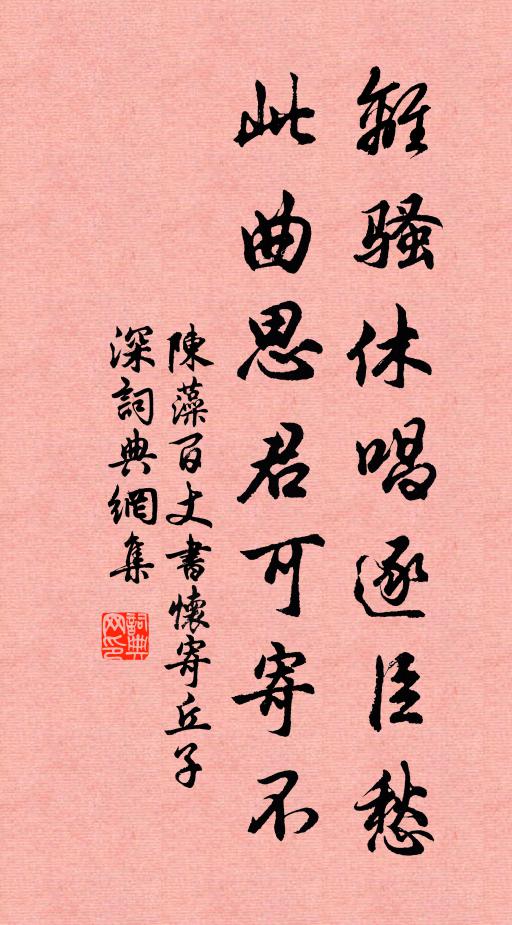 離騷休唱逐臣愁
此曲思君可寄不
陳藻百丈書懷寄丘子
深詞典網集
詞典
网印